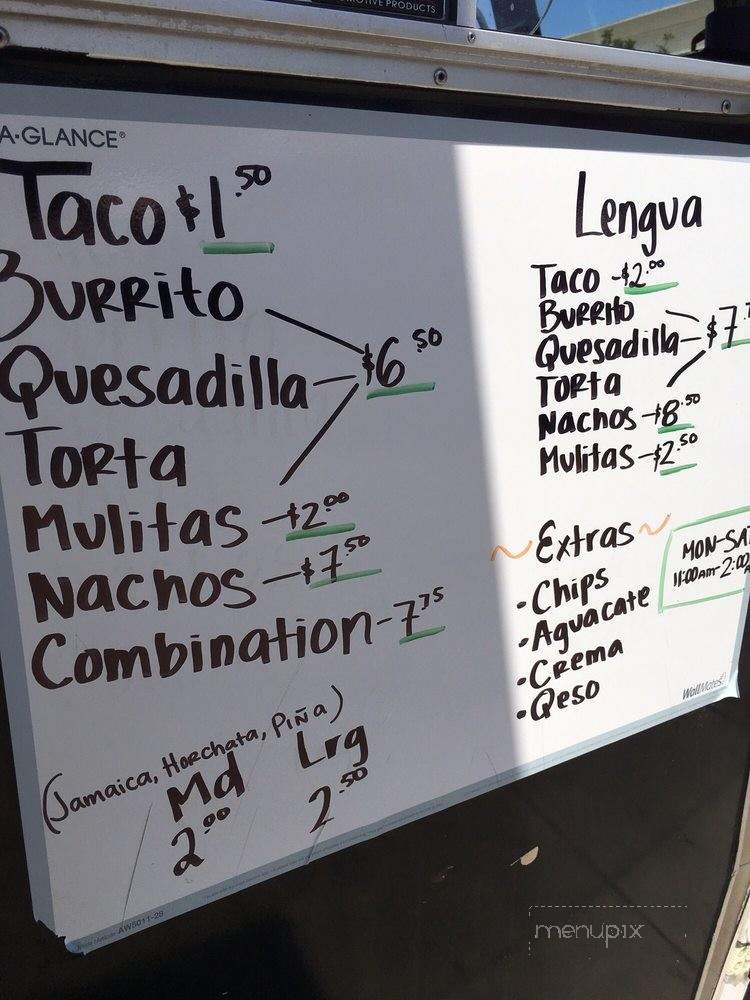 OMOTIVE PRODUCTS
A·GLANCE®
Taco $1.50
Burrito
Quesadilla $6.50
Torta
Mulitas - $2.00
Nachos - $7.50
Combination - 7.75
(Jamaica, Horchata, Piña)
Md Lrg
2.00 2.50
Lengua
Taco - $2.00
Burrito
Quesadilla - $7.
Torta
Nachos - $8.50
Mulitas - $2.50
~ Extras ~
• Chips
• Aguacate
• Crema
• Qeso
MON-SAT
11:00AM-2:00
WallMates
AW5011-28
menupix